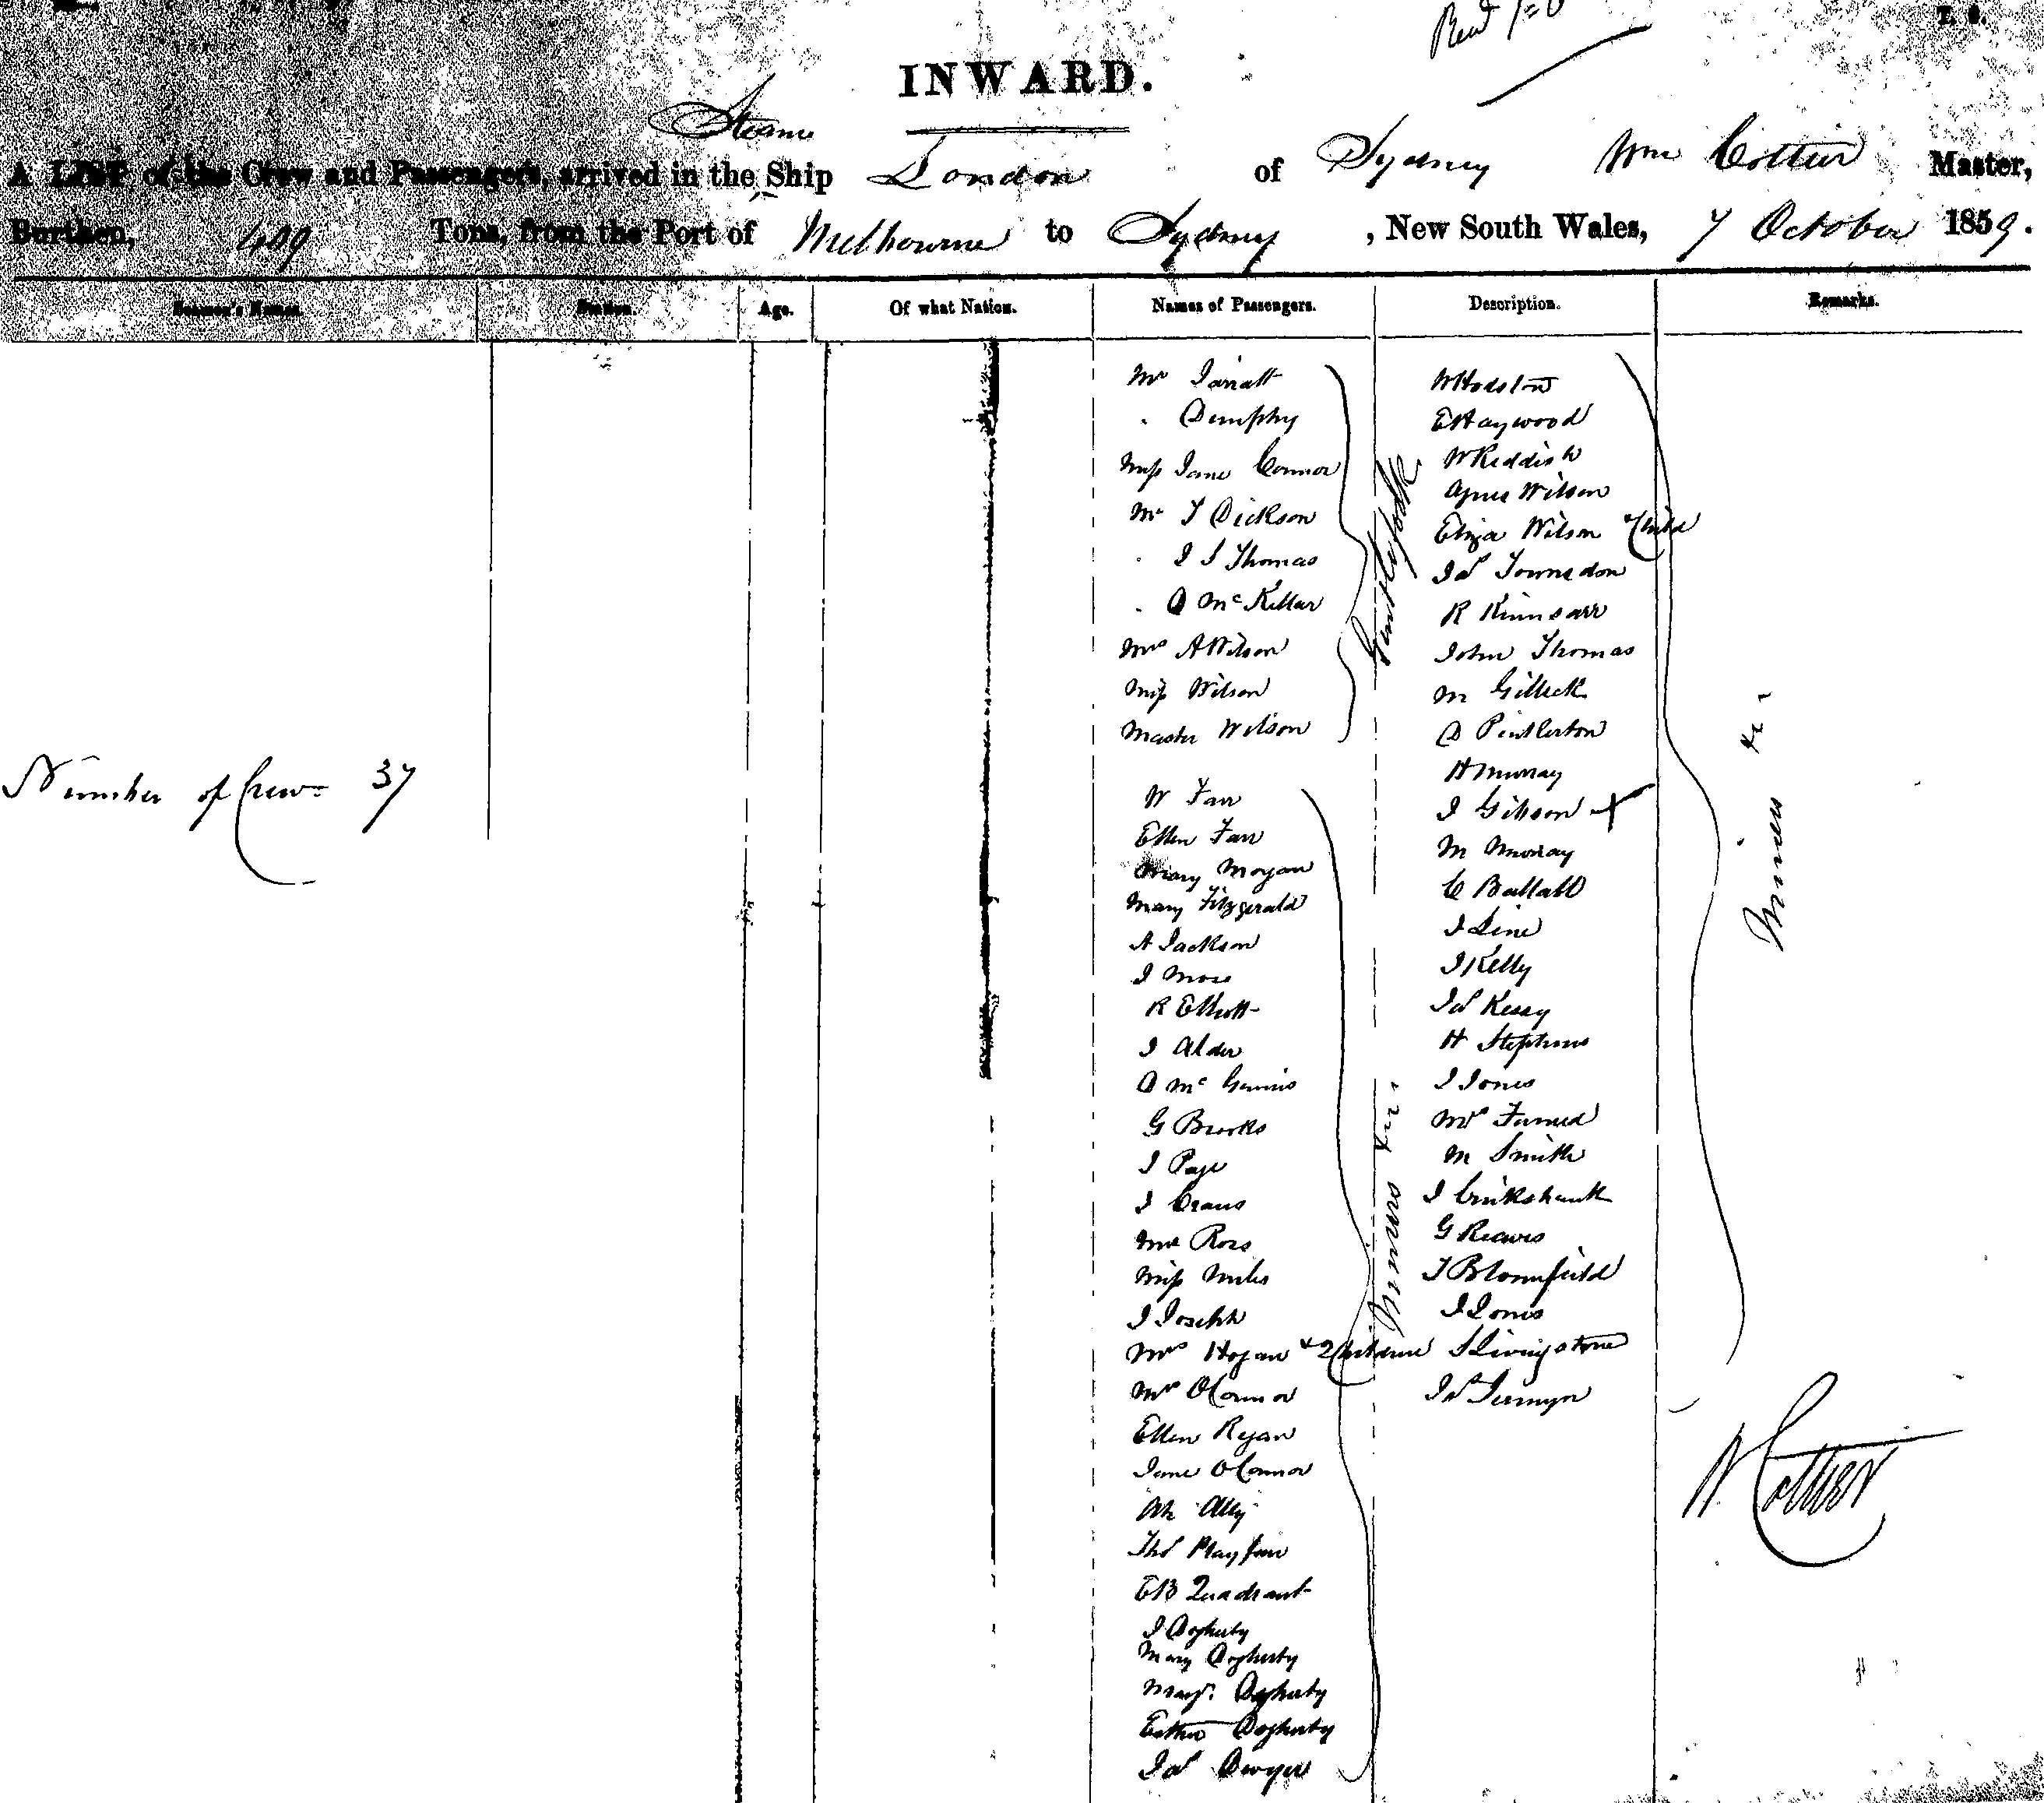 INWARD.
Steam
A LIST of the Crew and Passengers, arrived in the Ship London of Sydney Wm Cottier Master,
Burthen, 409 Tons, from the Port of Melbourne to Sydney, New South Wales, 7 October 1859.
Seamen's Names. Station. Age. Of what Nation. Names of Passengers. Description. Remarks.
Number of Crew = 37
Mr Jarratt
" Dumphy
Miss Jane Connor
Mr T Dickson
" J S Thomas
" D McKellar
Mrs A Wilson
Miss Wilson
Master Wilson
Gentlefolk
W Farr
Ellen Farr
Mary Morgan
Mary Fitzgerald
A Jackson
J Moss
R Elliott
J Alder
D McGinnis
G Brooks
J Page
J Evans
Mrs Ross
Miss Miles
J Joseph
Mrs Hogan & 2 Children
Mrs O'Connor
Ellen Ryan
Jane O'Connor
Ah Ally
Thos Playfair
E B Quadrant
J Dogherty
Mary Dogherty
Margt. Dogherty
Esther Dogherty
Jas Dwyer
Miners &c.
W Hodston
E Haywood
W Reddish
Agnes Wilson
Eliza Wilson & Child
Jas Townsdon
R Kinnearr
John Thomas
M Gilleck
D Pinkerton
H Murray
J Gibson X
M Murray
C Ballall
J Line
J Kelly
Jas Kessy
H Stephens
J Jones
Mrs Furned
M Smith
J Cruikshank
G Reaves
T Bloomfield
J Jones
S Livingstone
Jas Jermyn
Miners &c.
W Cottier